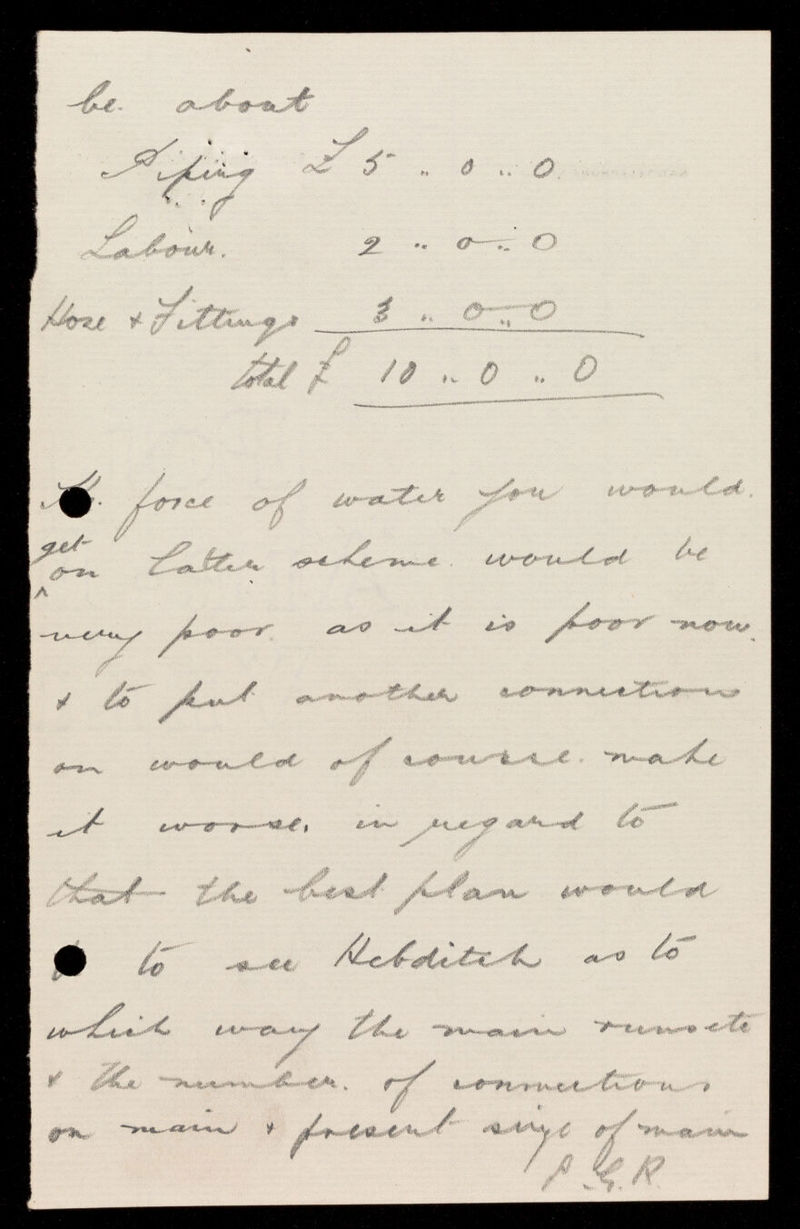 be about
Piping £ 5 " 0 " 0
Labour. 2 " 0 " 0
Hose & Fittings 3 " 0 " 0
total £ 10 " 0 " 0
force of water you would.
get
on latter scheme. would be
very poor. as it is poor now.
& to put another connection
on would of course. make
it worse. in regard to
that the best plan would
to see Hebditch as to
which way the main runs etc
& the number. of connections
on main & present size of main
P.G.R.